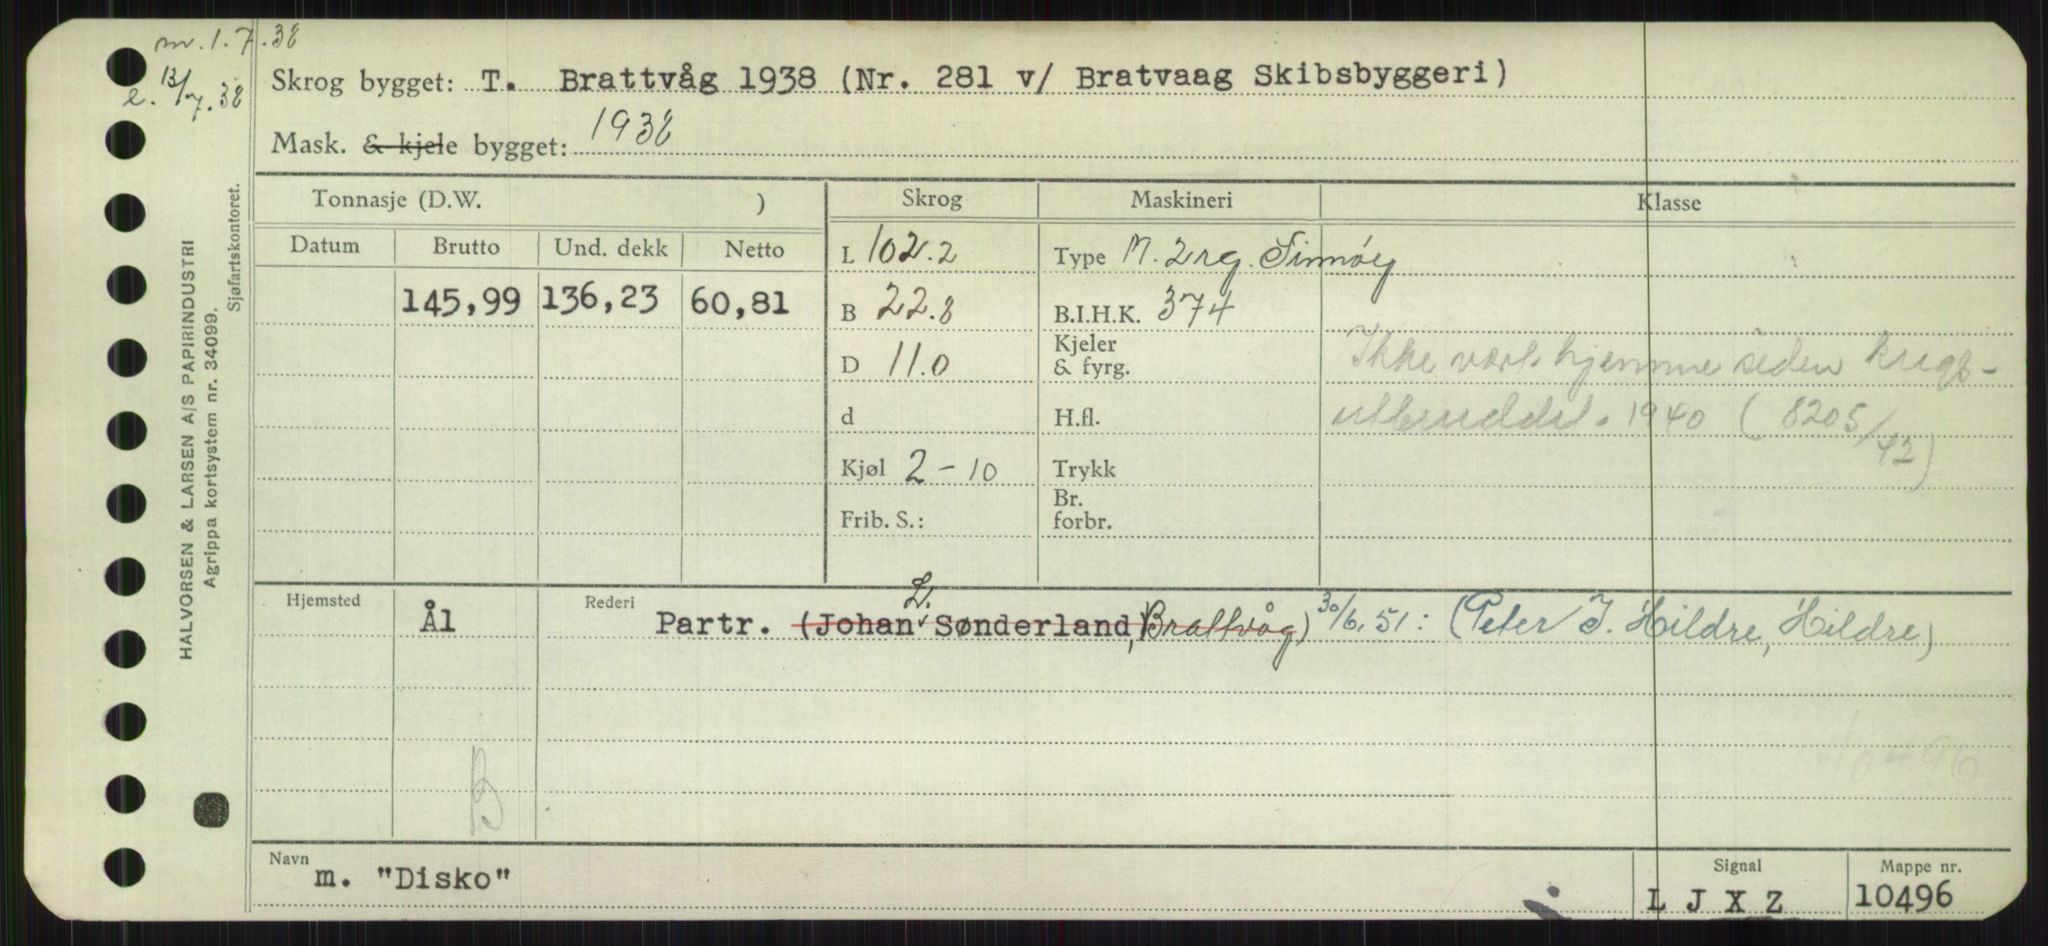 m. 1.7.38
e. 13/7.38
Skrog bygget: T. Brattvåg 1938 (Nr. 281 v/ Bratvaag Skibsbyggeri)
Mask. & kjele bygget: 1938
HALVORSEN & LARSEN A/S PAPIRINDUSTRI
Agrippa kortsystem nr. 34099.
Sjøfartskontoret.
Tonnasje (D.W. )
Skrog
Maskineri
Klasse
Datum
Brutto
Und. dekk
Netto
145,99
136,23
60,81
L 102.2
B 22.8
D 11.0
d
Kjøl 2-10
Frib. S.:
Type M. 2 rg.
B.I.H.K. 374
Kjeler
& fyrg.
H.fl.
Trykk
Br.
forbr.
Ikke vært hjemme siden krigs-
utbruddet 1940 (8205/42)
Hjemsted
Ål
Rederi
Partr. (Johan L. Sønderland, Brattvåg) 30/6.51: (Peter J. Hildre, Hildre)
B
10496
Navn
m. "Disko"
Signal
L J X Z
Mappe nr.
10496